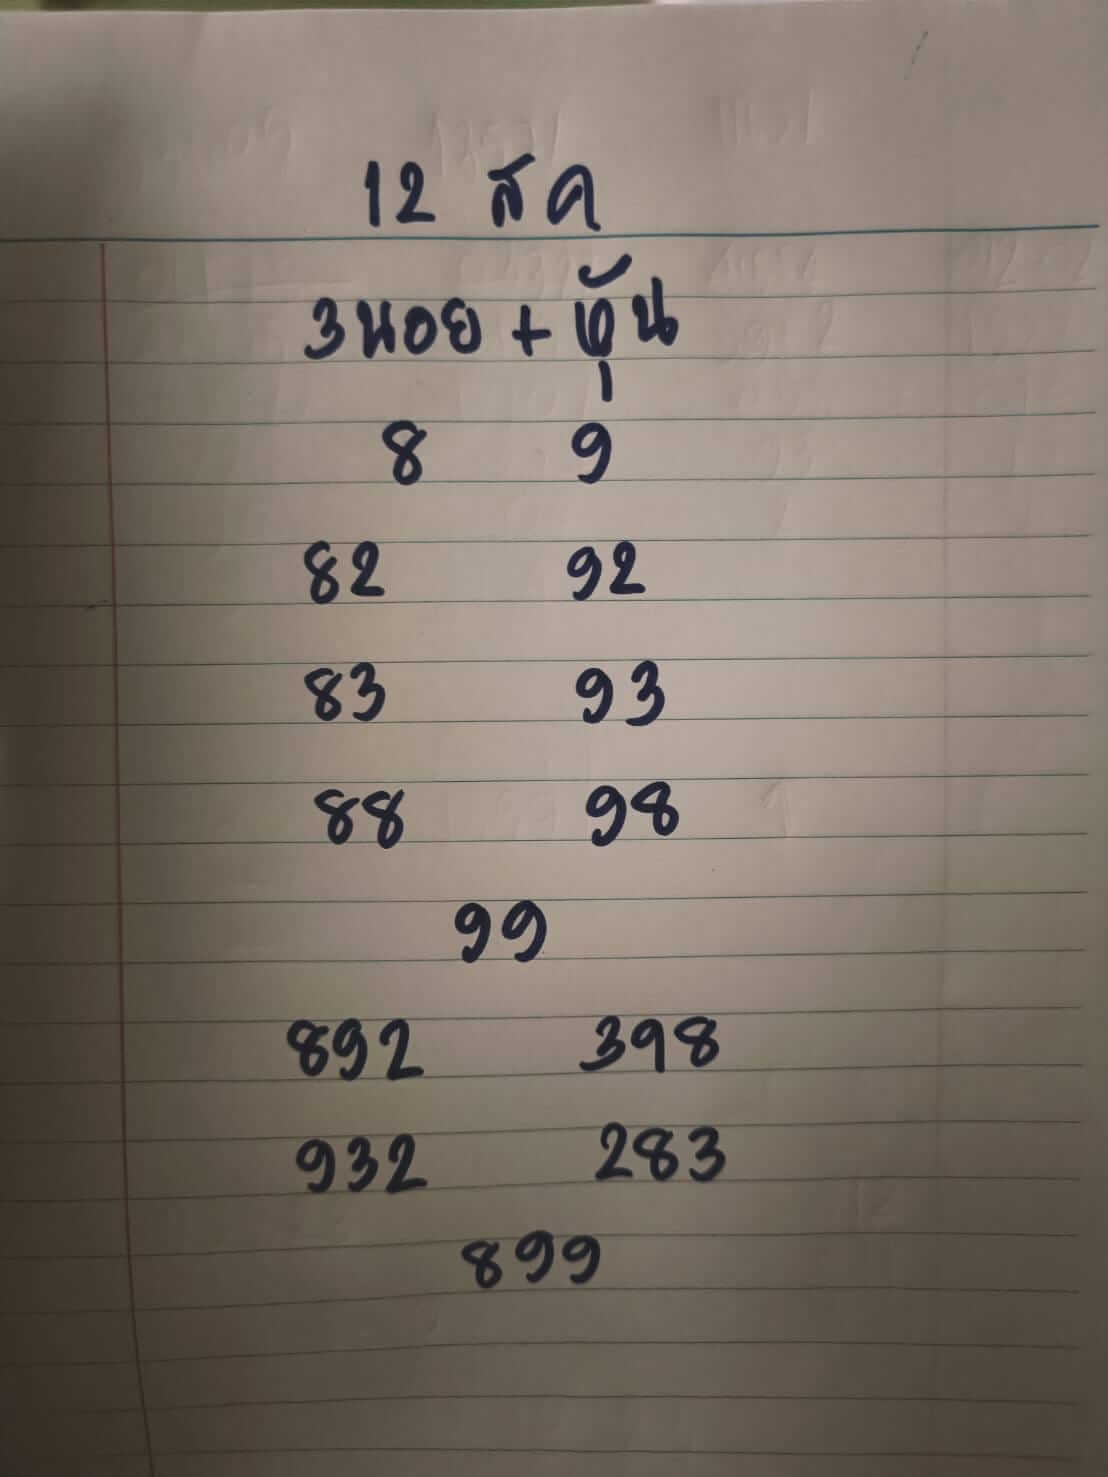 12 สค
3นอย + หุ้น
8 9
82 92
83 93
88 98
99
892 398
932 283
899